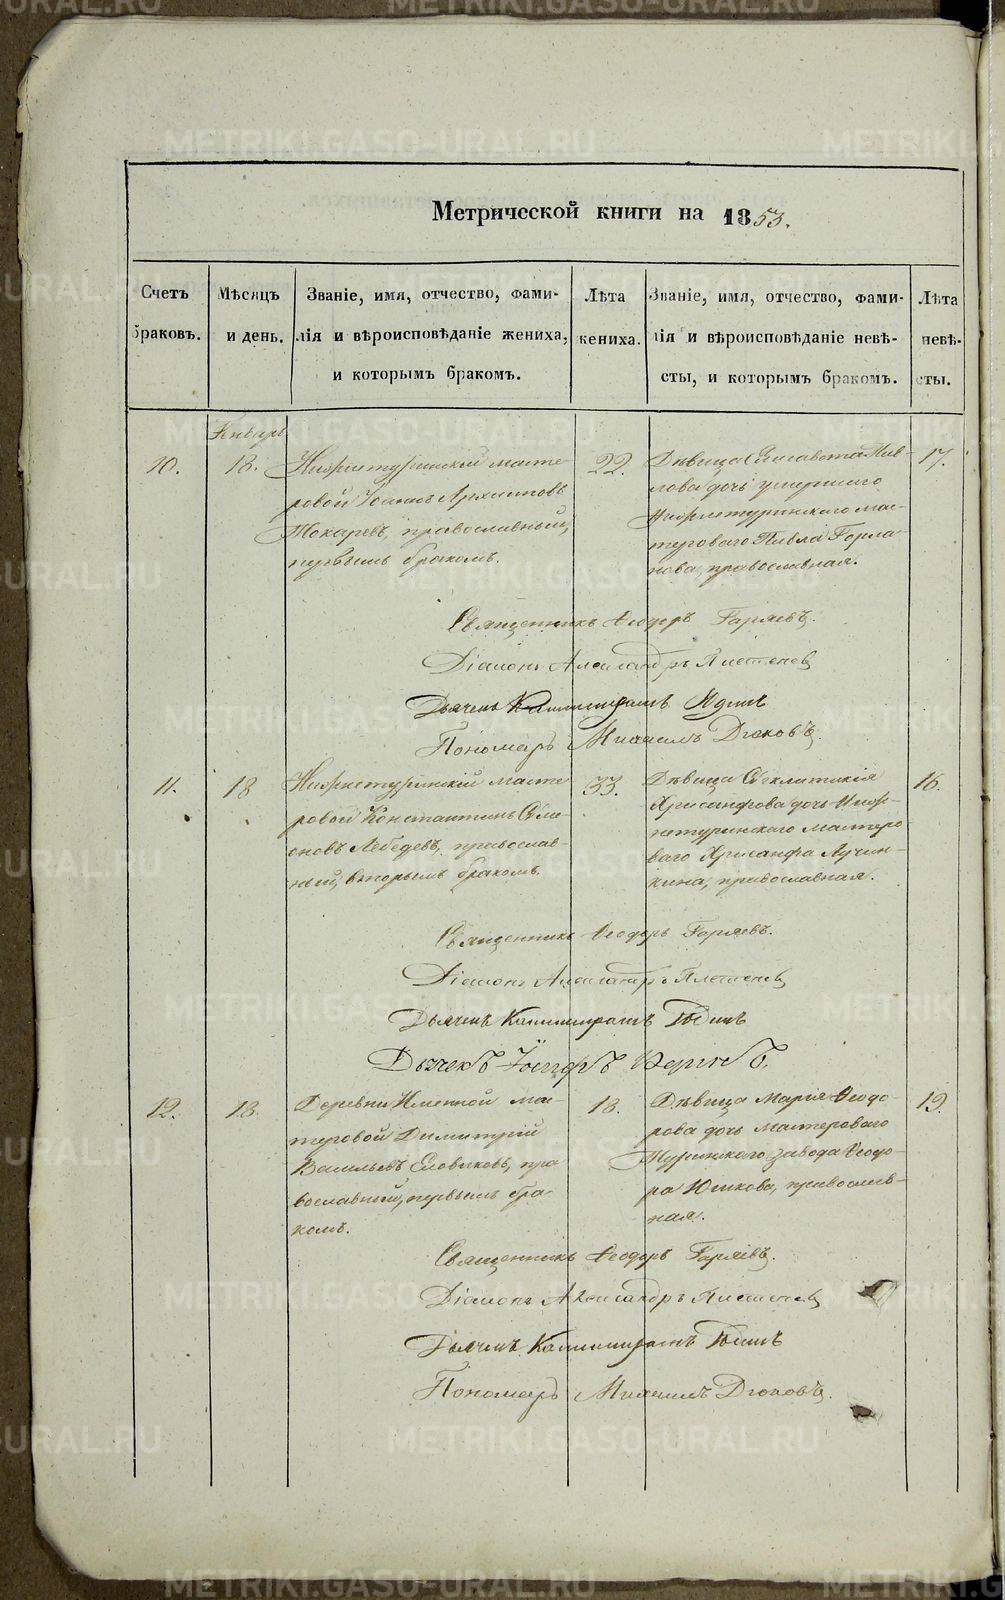 METRIKI.GASO-URAL.RU
Метрической книги на 1853.
Счетъ браковъ.
Мѣсяцъ и день.
Званіе, имя, отчество, фами-
лія и вѣроисповѣданіе жениха,
и которымъ бракомъ.
Лѣта жениха.
Званіе, имя, отчество, фами-
лія и вѣроисповѣданіе невѣ-
сты, и которымъ бракомъ.
Лѣта невѣ-
сты.
Январь
10.
18.
Нижнетуринскій масте-
ровой Іоаннъ Архиповъ
Токаревъ, православный,
первымъ бракомъ.
22.
Дѣвица Елисавета Пав-
лова дочь умершаго
Нижнетуринскаго мас-
тероваго Павла
православная.
17.
Священникъ Ѳеодоръ Горяевъ.
Діаконъ Александръ Плетенев
Дьячекъ
Пономарь Михаилъ Дюковъ.
11.
18
Нижнетуринскій масте-
ровой Константинъ Симе-
оновъ Лебедевъ, православ-
ный, вторымъ бракомъ.
33.
Дѣвица Синклитикія
Хрисанфова дочь Ниж-
нетуринскаго мастеро-
ваго Хрисанфа Лучин-
кина, православная.
16.
Священникъ Ѳеодоръ Горяевъ.
Діаконъ Александръ Плетенев
Дьячекъ
Дьячекъ Іосифъ
12.
18.
Деревни Именной мас-
теровой Димитрій
Васильевъ Еловиковъ, пра-
вославный, первымъ бра-
комъ.
18.
Дѣвица Марія Ѳеодо-
рова дочь мастероваго
Туринскаго завода Ѳеодо-
ра Юшкова, православ-
ная.
19.
Священникъ Ѳеодоръ Горяевъ.
Діаконъ Александръ Плетенев
Дьячекъ
Пономарь Михаилъ Дюковъ.